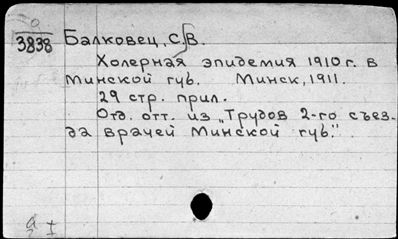 3838
Балковец, С.В.
Холерная эпидемия 1910 г. в
Минской губ. Минск, 1911.
29 стр. прил.
Отд. отт. из „Трудов 2-го съез-
да врачей Минской губ.".